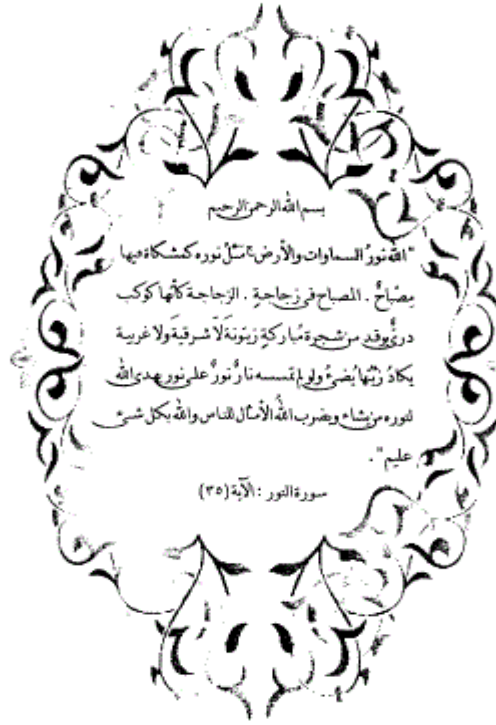 بسم الله الرحمن الرحيم
"الله نورُ السماوات والأرض ج مَثَلُ نوره كمشكاة فيها
مِصْباحٌ . المصباح فى زجاجةٍ . الزجاجة كأنها كوكب
درىٌّ يوقد من شجرة مُباركةٍ زيتونَة لاّ شرقيةَ ولا غربية
يكادُ زيتُها يُضىءُ ولو لم تمسسه نارٌ نورٌ على نور يهدى الله
لنوره من يشاء ويضرب اللهُ الأمثال للناس والله بكل شىء
عليم" .
سورة النور : الآية (٣٥)